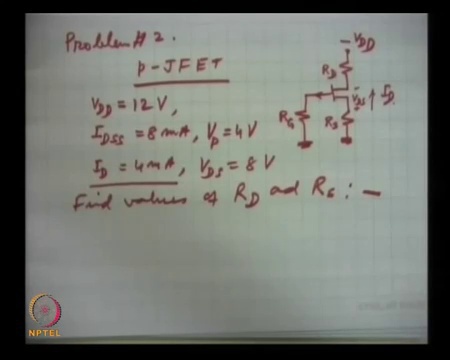 Problem # 2.
p-JFET
V_DD = 12 V,
I_DSS = 8 mA, V_p = 4 V
I_D = 4 mA, V_DS = 8 V
Find values of R_D ad R_S : -
- V_DD
R_D
V_DS
I_D
R_G
R_S
NPTEL